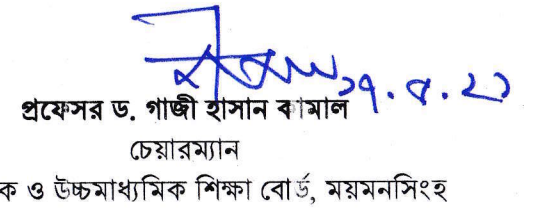 প্রফেসর ড. গাজী হাসান কামাল
চেয়ারম্যান
ক ও উচ্চমাধ্যমিক শিক্ষা বোর্ড, ময়মনসিংহ